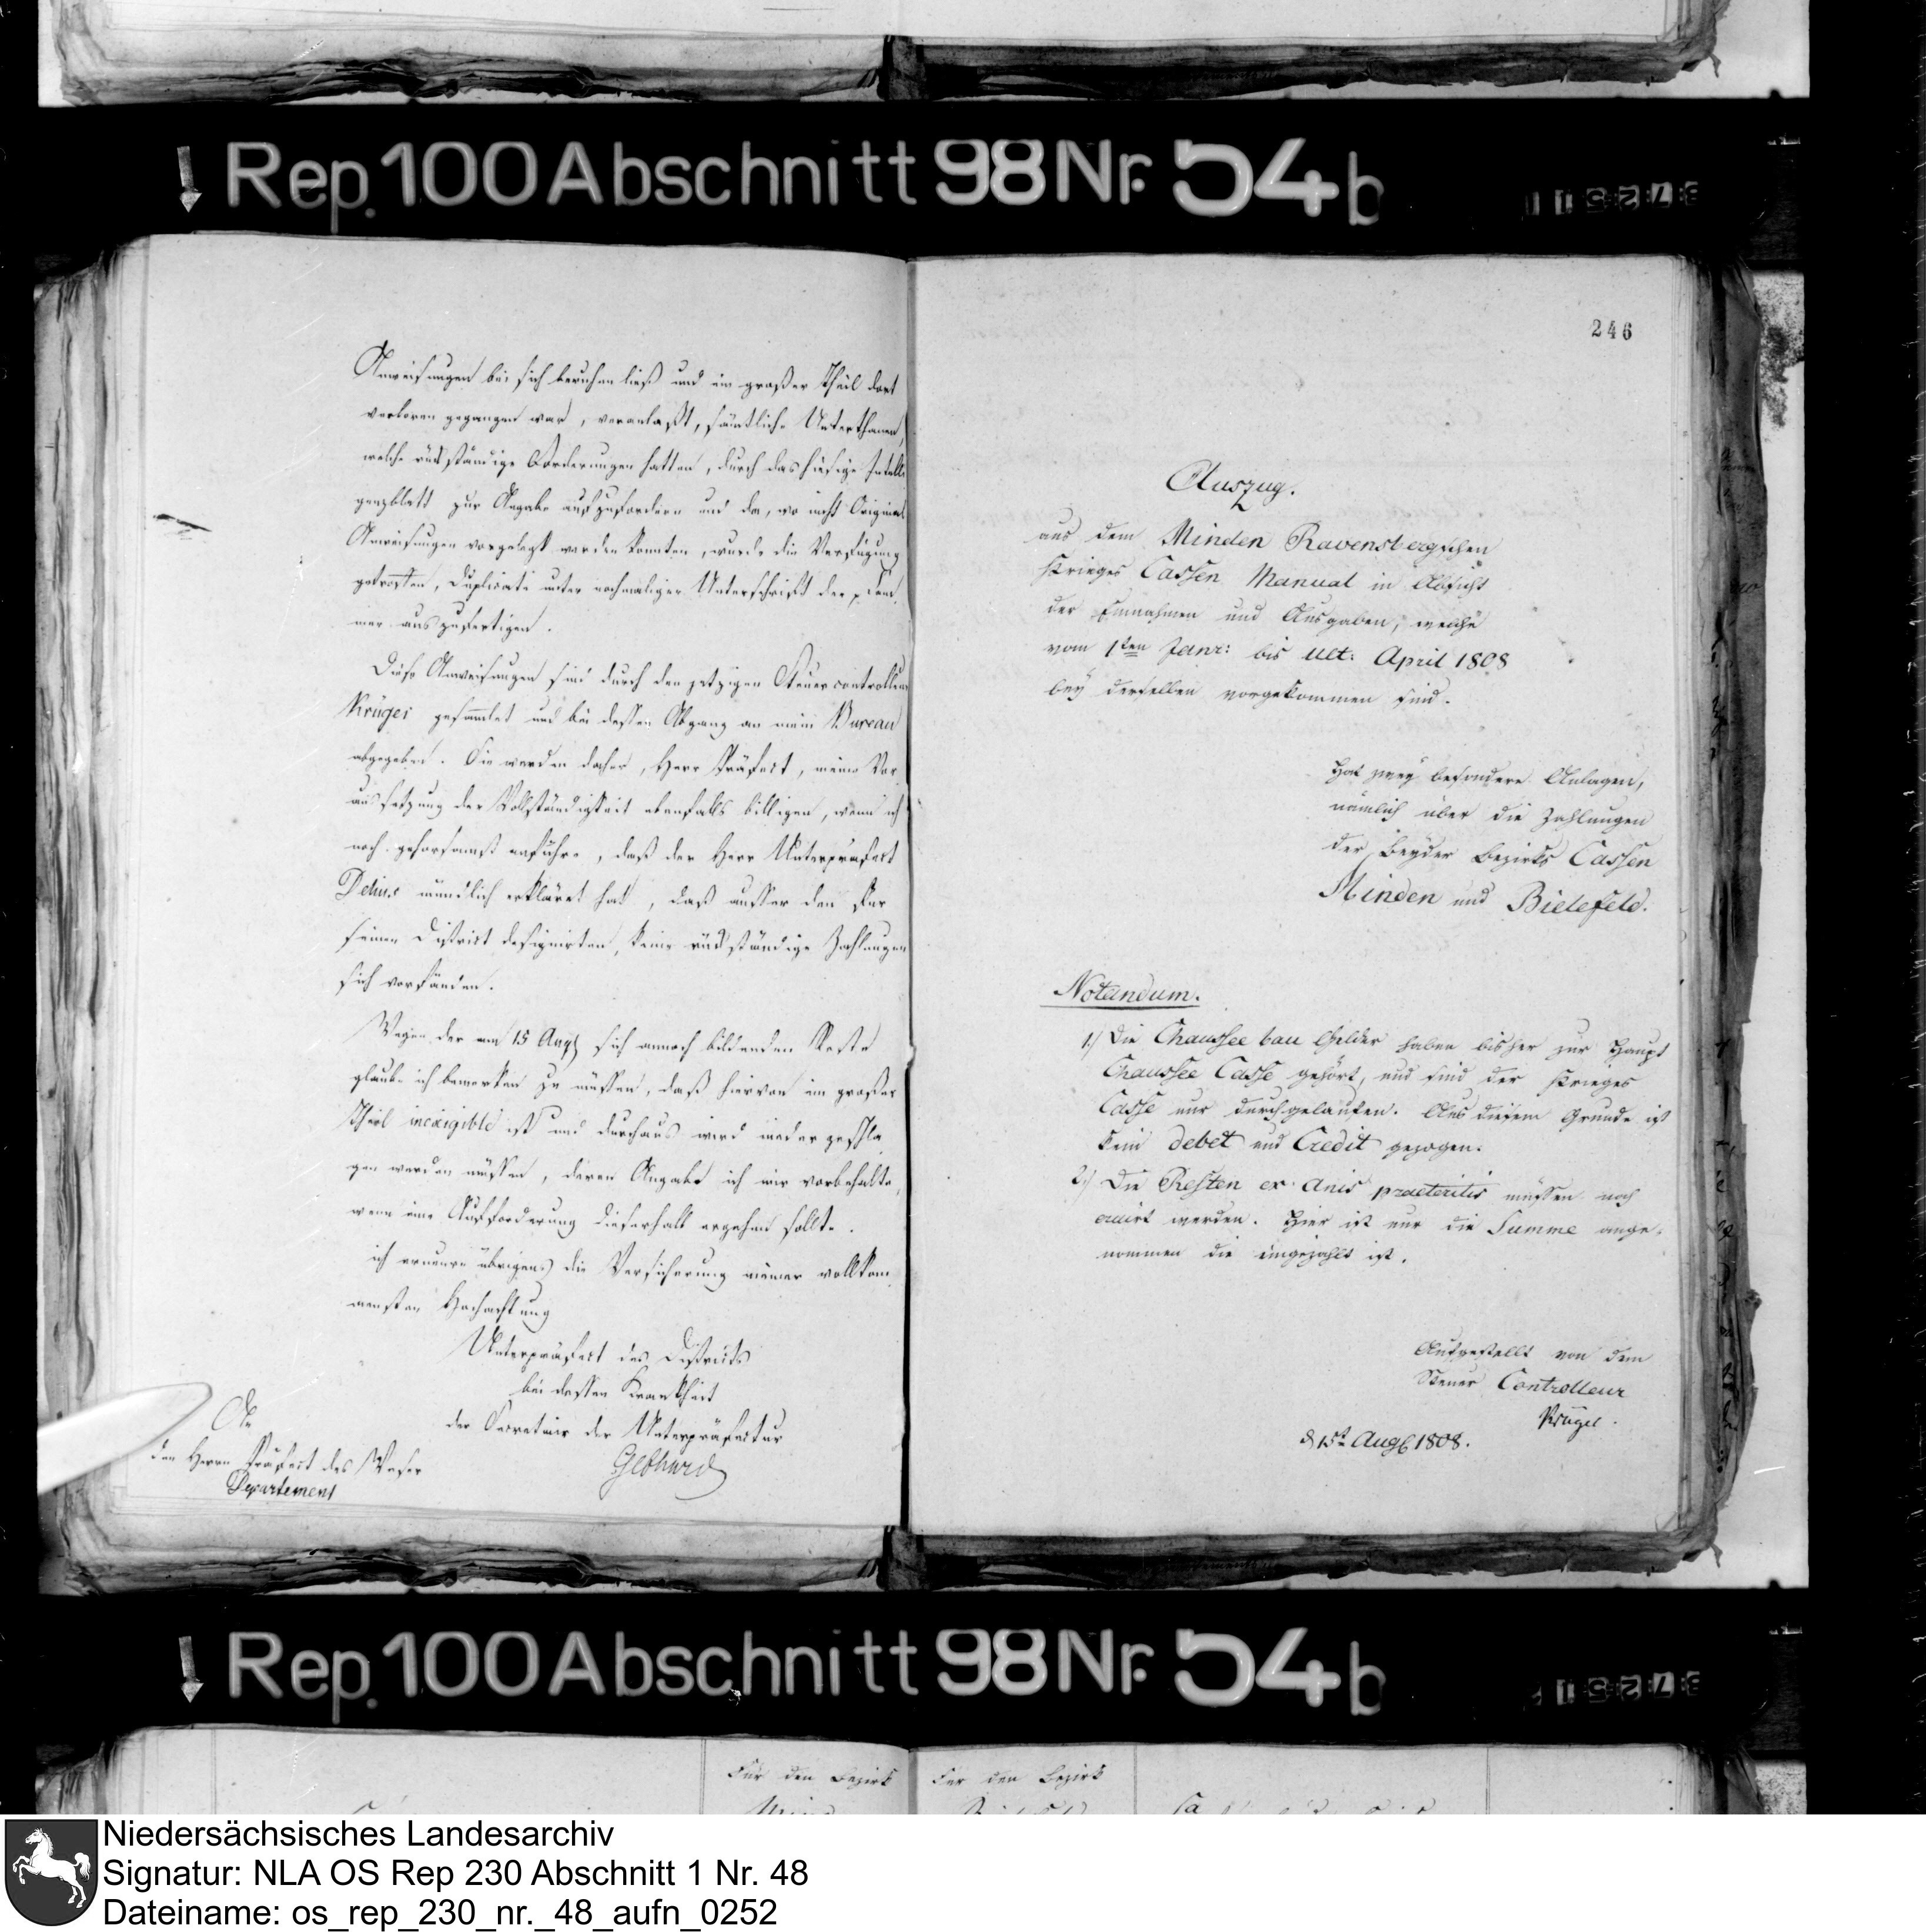 Rep. 100 Abschnitt 98 Nr. 54 b
Anweisungen bei sich beruhen ließ und ein großer Theil dort
verloren gegangen war, veranlaßt, sämtliche Unterthanen,
welche rückständige Forderungen hatten, durch das hiesige Intelli
genzblatt zur Angabe aufzufordern und da, wo nicht Original
Anweisungen vorgelegt werden konnten, wurde die Verfügung
getroffen, Duplicate unter nochmaliger Unterschrift der
auszufertigen.
Diese Anweisungen sind durch den jetzigen Steuercontrolleur
Krüger gesammlet und bei dessen Abgang an mein Bureau
abgegeben. Sie werden daher, Herr Präfect, meine Vor
aussetzung der Vollständigkeit ebenfalls billigen, wenn ich
noch gehorsamst anführe, daß der Herr Unterpräfect
Delius mündlich erkläret hat, daß ausser den für
seinen District designirten, keine rückständige Zahlungen
sich vorfänden.
Wegen der am 15 Augt sich annoch bildenden Reste
glaube ich bemerken zu müssen, daß hiervon ein großer
Theil inexigible ist und durchaus wird nieder geschla
gen werden müssen, deren Angabe ich mir vorbehalte,
wenn eine Aufforderung dieserhalb ergehen sollte.
ich erneure übrigens die Versicherung meiner vollkom
mensten Hochachtung
Unterpräfect des Districts
bei dessen Krankheit
der Secretair der Unterpräfectur
Gebhard
An
den Herrn Präfect des Weser
Departement
246
Auszug.
aus dem Minden Ravensbergschen
Krieges Cassen Manual in Absicht
der Einnahmen und Ausgaben, welche
vom 1ten Janr: bis ult: April 1808
bey derselben vorgekommen sind.
Hat zwey besondere Anlagen,
nämlich über die Zahlungen
der beyder Bezirks Cassen
Minden und Bielefeld.
Notandum.
1.) Die Chaussee bau Gelder haben bisher zur Haupt
Chaussee Casse gehört, und sind der Krieges
Casse nur durchgelaufen. Aus diesem Grunde ist
kein debet und Credit gezogen.
2.) Die Resten ex anis praeteritis müssen noch
eruirt werden. Hier ist nur die Summe ange-
nommen die eingezahlt ist.
Aufgestellt von dem
Steuer Controlleur
Krüger.
d 15t Augt 1808.
Rep. 100 Abschnitt 98 Nr. 54 b
Für den Bezirk
Für den Bezirk
Niedersächsisches Landesarchiv
Signatur: NLA OS Rep 230 Abschnitt 1 Nr. 48
Dateiname: os_rep_230_nr._48_aufn_0252